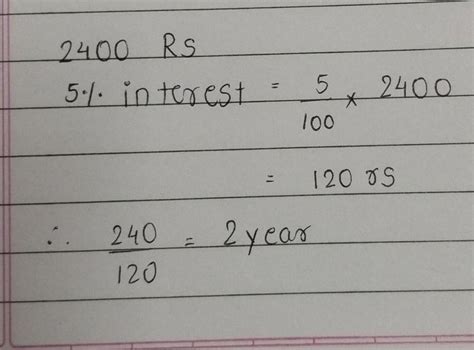 2400 Rs
5.1. interest = 5/100 × 2400
= 120 rs
∴ 240/120 = 2 year